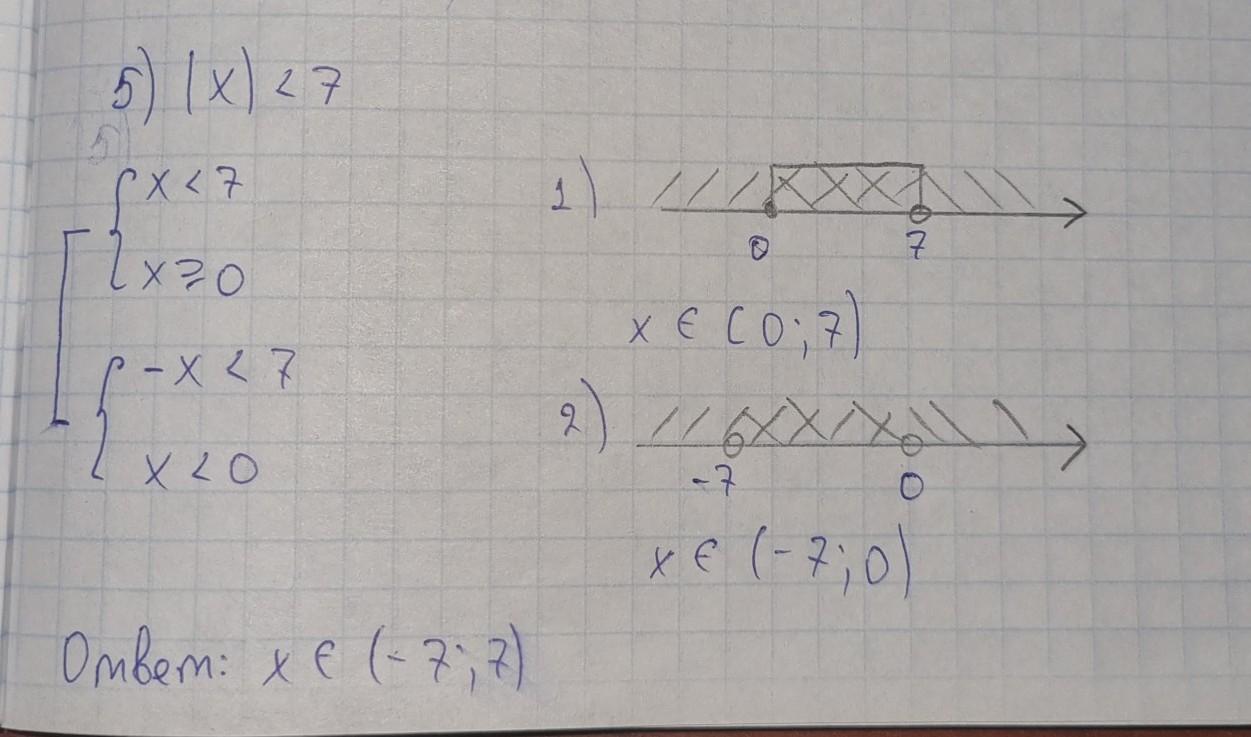 5) |x| < 7
5)
x < 7
x ⩾ 0
-x < 7
x < 0
1)
0 7
x ∈ [0;7)
2)
-7 0
x ∈ (-7;0)
Ответ: x ∈ (-7;7)